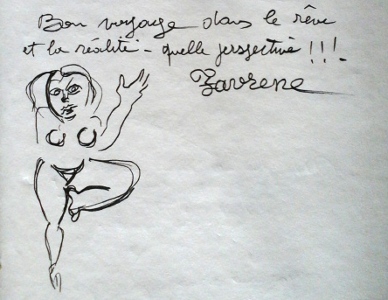 Bon voyage dans le rêve
et la réalité - quelle perspective !!!